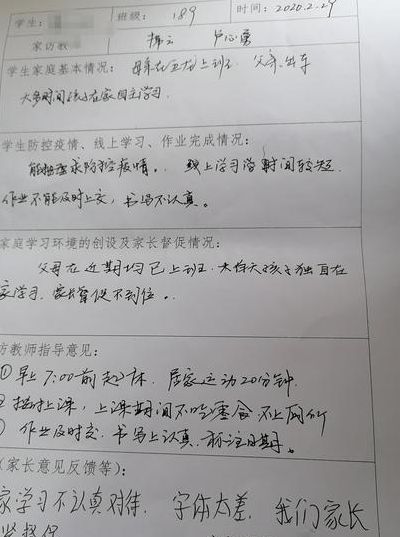 学生: 班级: 189 时间: 2020.2.29
家访教
学生家庭基本情况: 母亲在 上班 父亲 出车
大多时间孩子在家自主学习.
学生防控疫情、线上学习、作业完成情况:
能按要求防控疫情。. 线上学习 时间较短
作业不能及时上交, 书写不认真。
家庭学习环境的创设及家长督促情况:
父母在近期均已上班. 大部分孩子独自在
家学习. 家长督促不到位。.
访教师指导意见:
① 早上7:00前起床. 居家运动20分钟.
按时上课, 上课期间不吃零食 不上厕所
作业及时交. 书写上认真. 标注日期。
(家长意见反馈等):
家学习不认真对待. 字体太差. 我们家长
督促